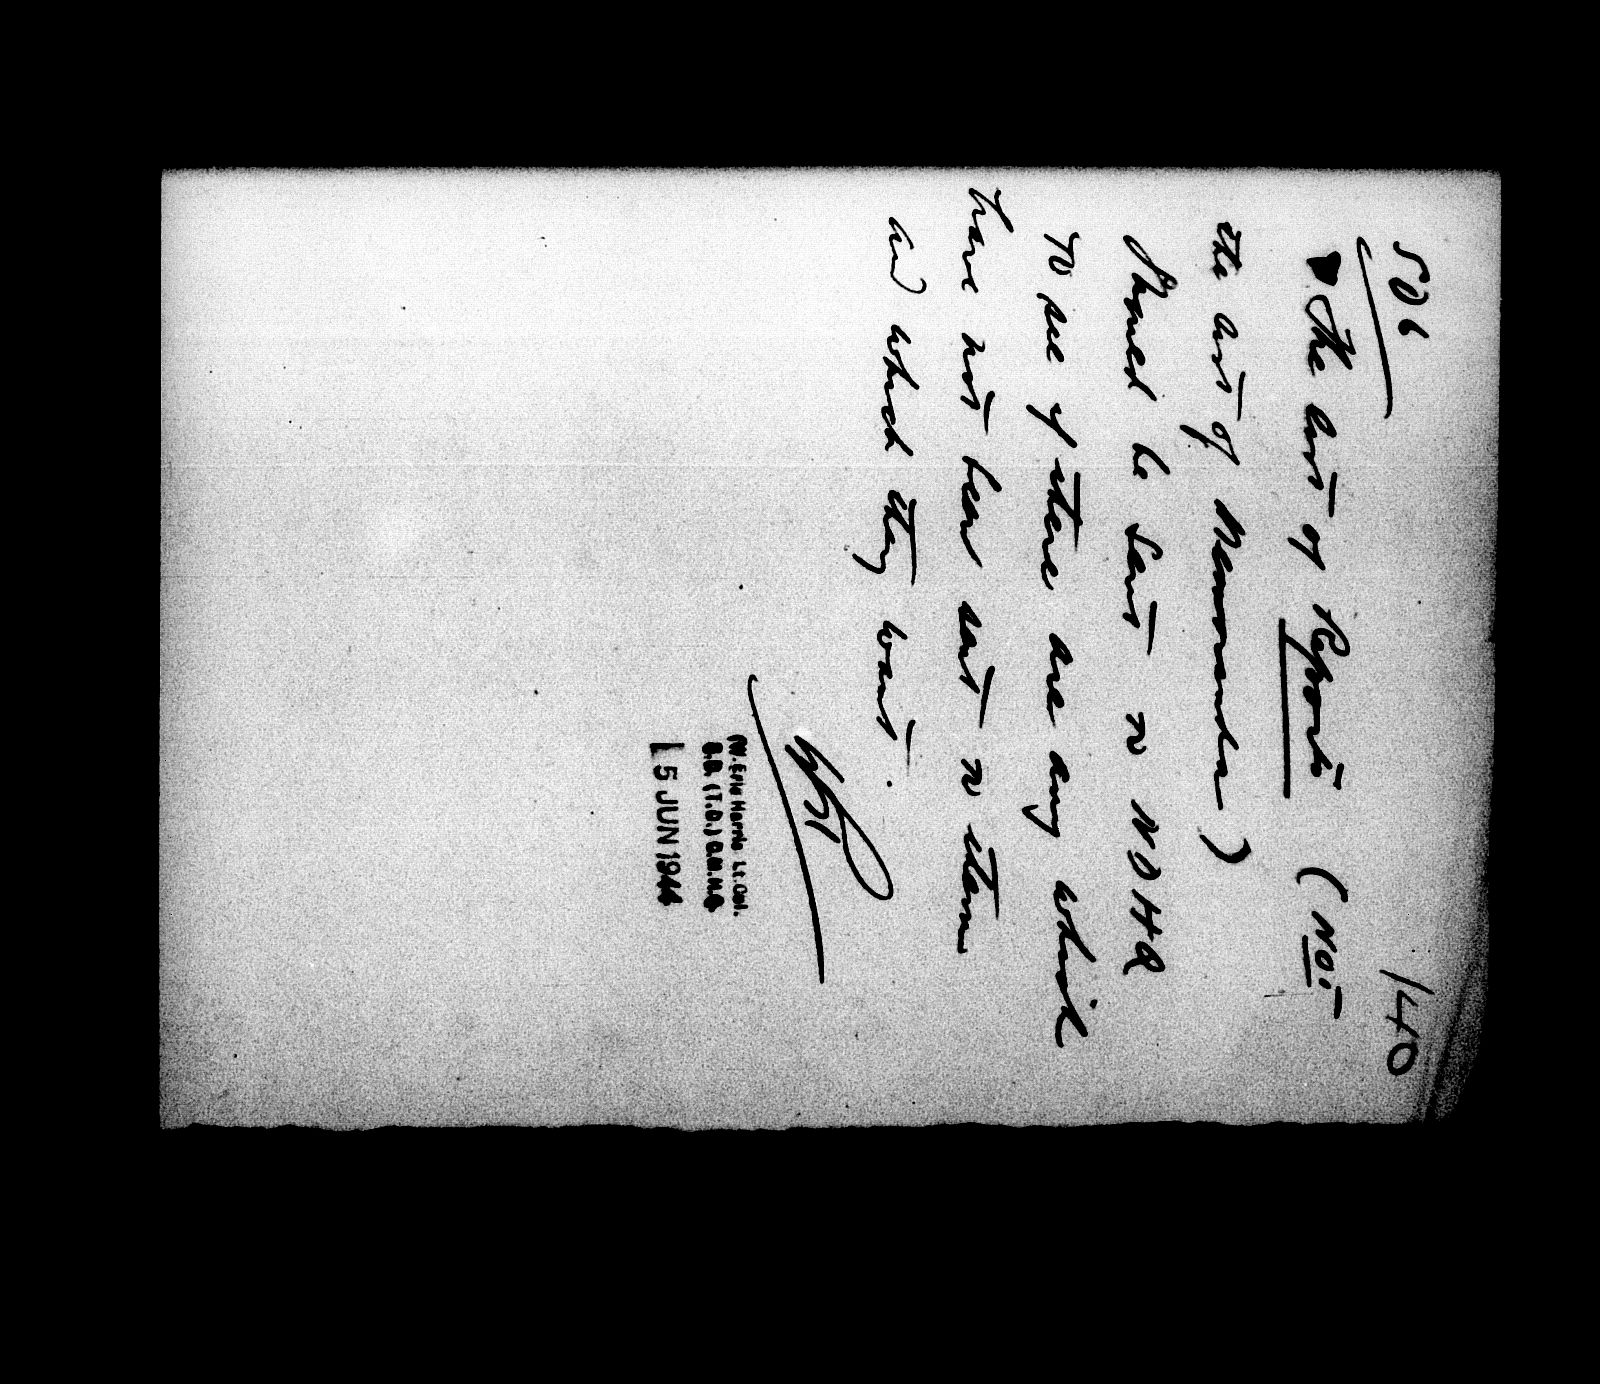 SD6
140
The list of Reports (Not
the list of Memoranda)
should be sent to NDHQ
to see if there are any which
have not been sent to them
and which they want.
(W. Eric Harris Lt. Col.
S.D. (T.D.) C.M.H.Q.
15 JUN 1944